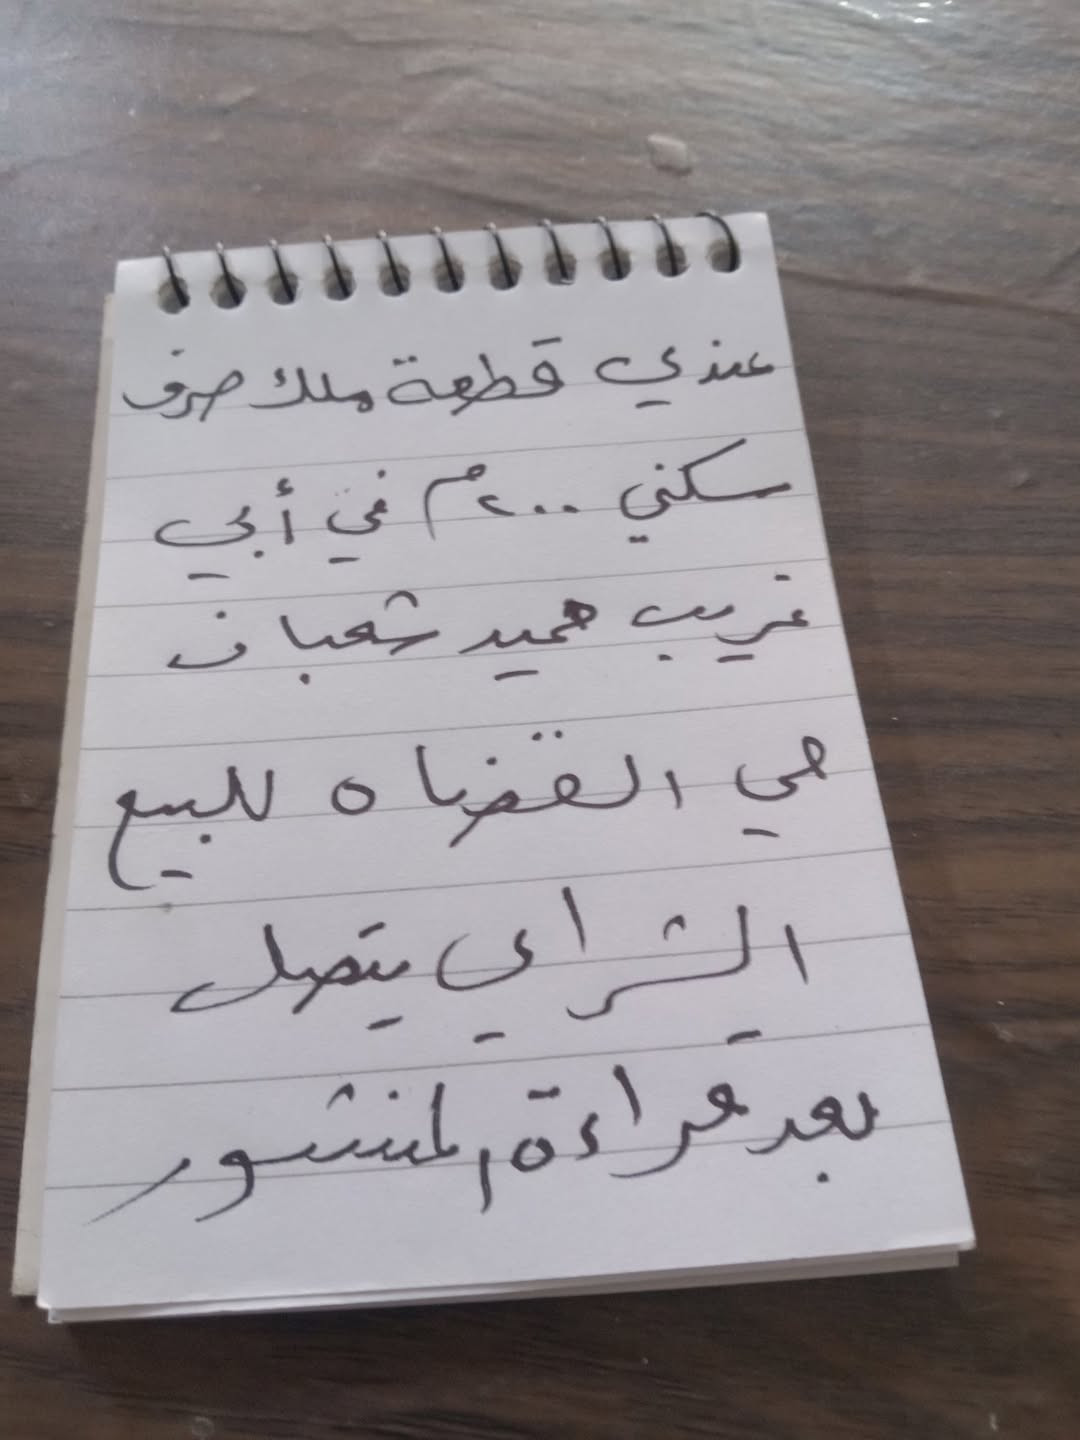 عندي قطعة ملك صرف
سكني ٢٠٠م في أبي
غريب حميد شعبان
حي القضاه للبيع
الشراي يتصل
بعد قراءة المنشور